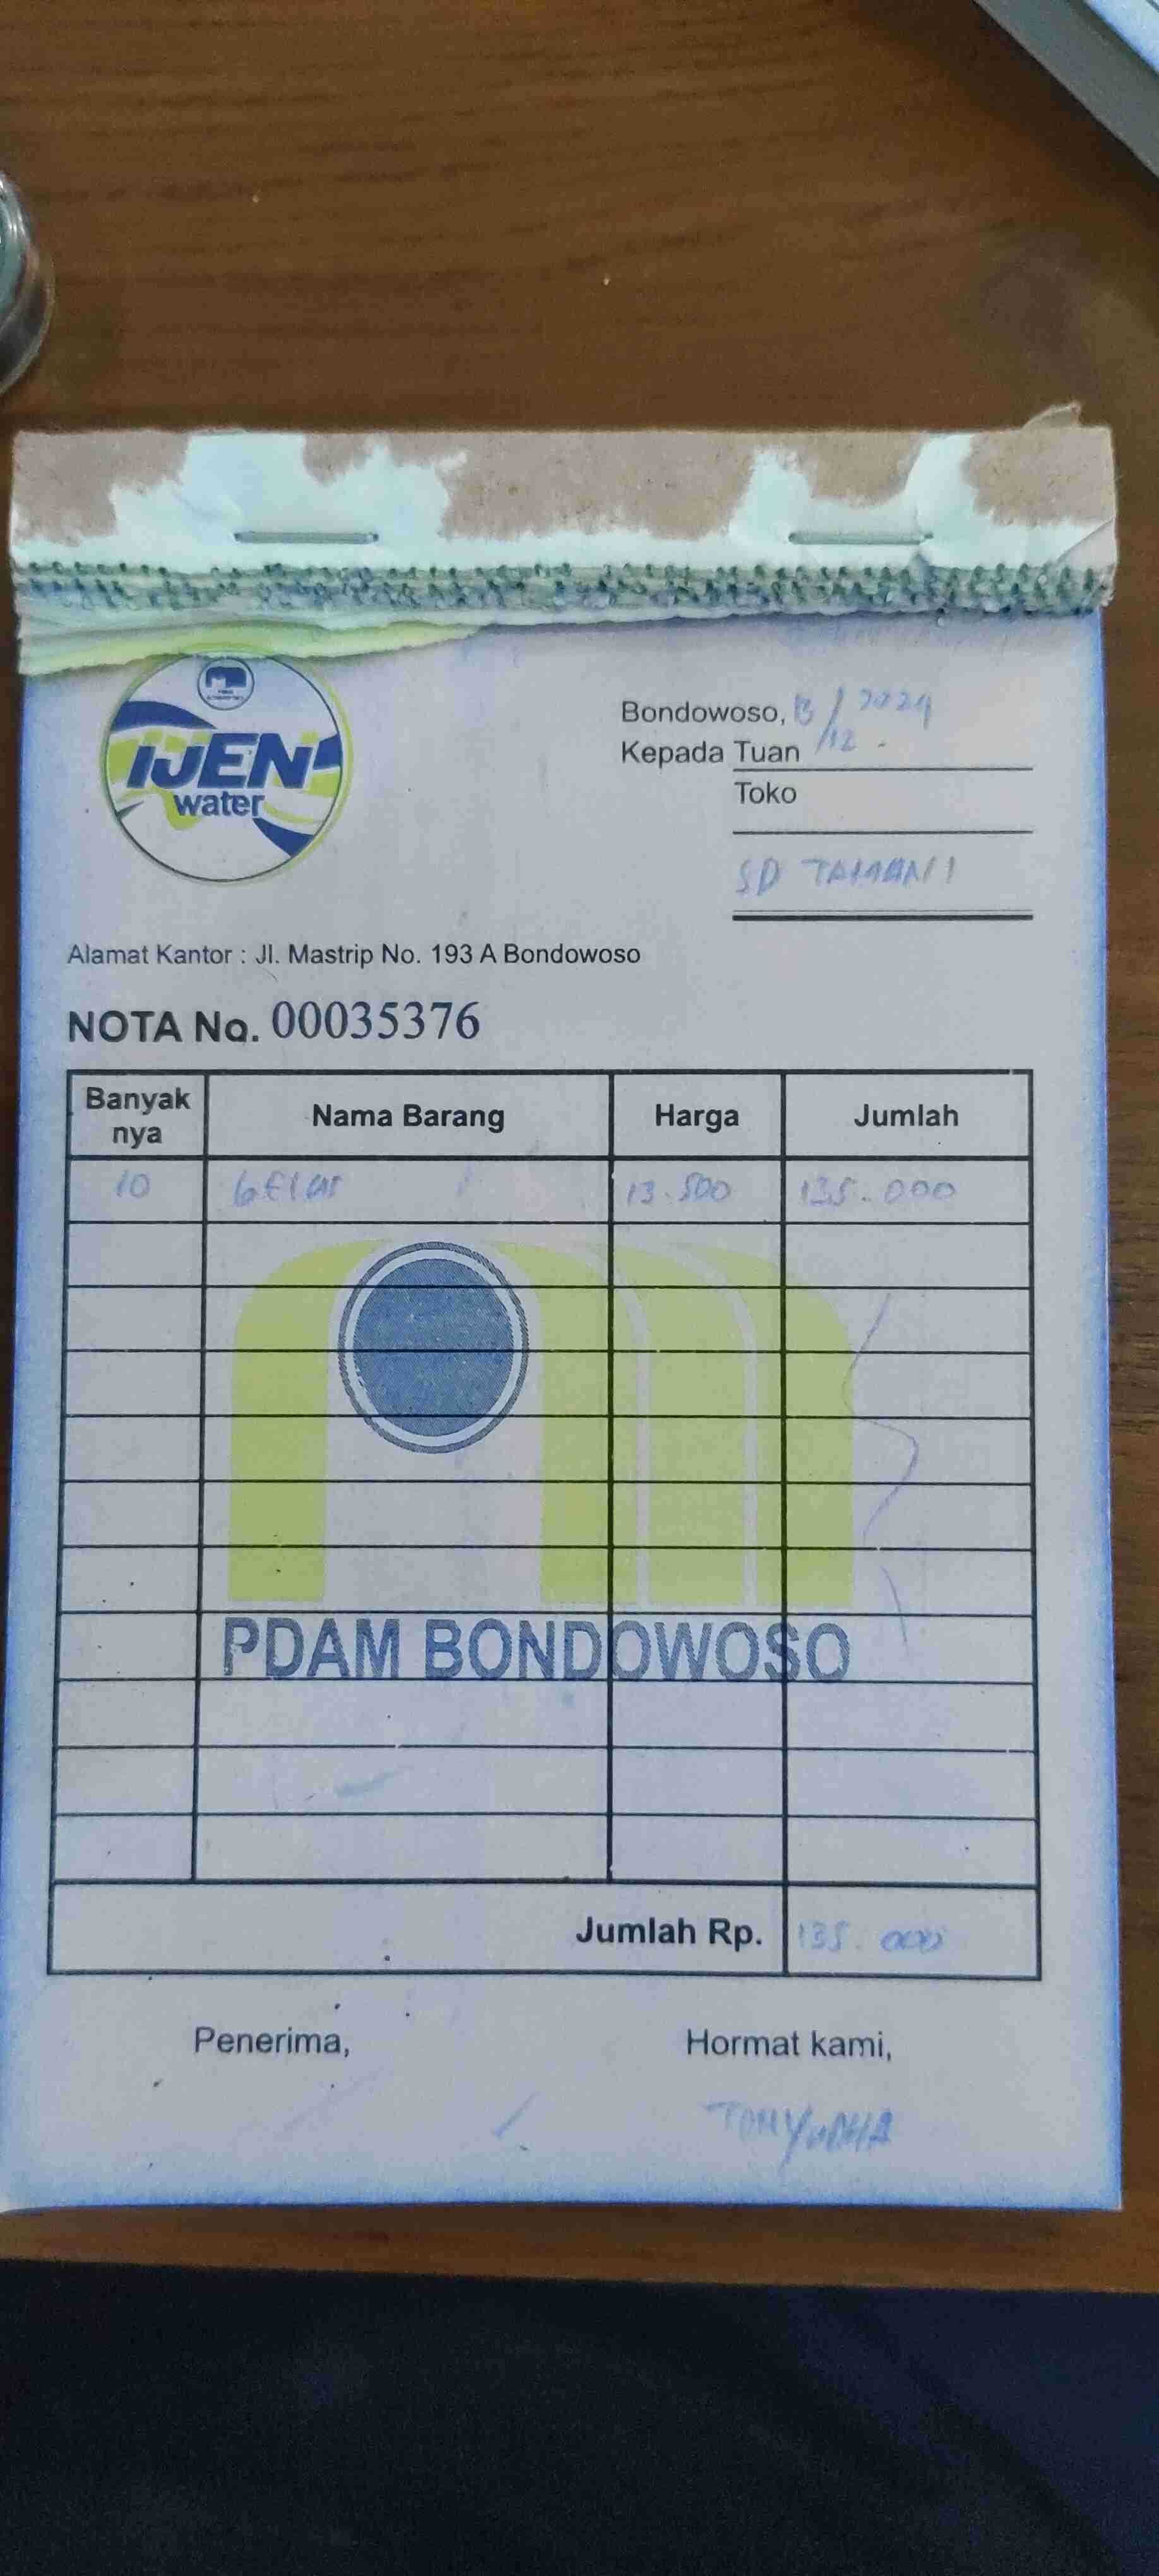 IJEN
water
Bondowoso, 13/12 - 2024
Kepada Tuan
Toko
SD TAMAN 1
Alamat Kantor : Jl. Mastrip No. 193 A Bondowoso
NOTA No. 00035376
Banyak nya Nama Barang Harga Jumlah
10 GElas 13.500 135.000
PDAM BONDOWOSO
Jumlah Rp. 135.000
Penerima, Hormat kami,